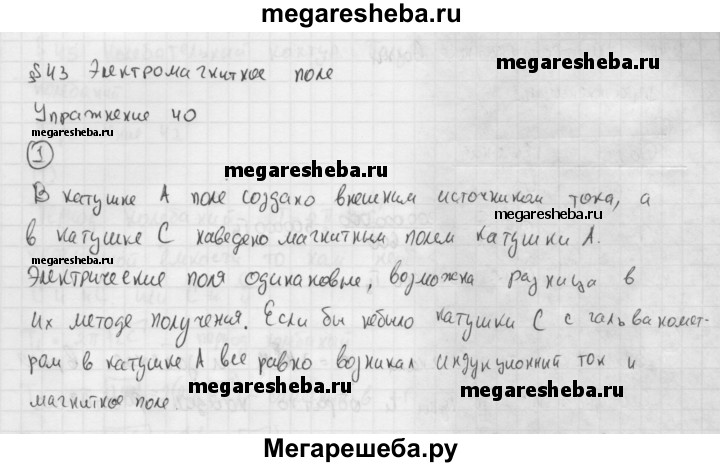 megaresheba.ru
§43 Электромагнитное поле
megaresheba.ru
Упражнение 40
megaresheba.ru
1
megaresheba.ru
В катушке А поле создано внешним источником тока, а
megaresheba.ru
в катушке С наведено магнитным полем катушки А.
megaresheba.ru
Электрические поля одинаковые, возможна разница в
их методе получения. Если бы небыло катушки С с гальваномет-
ром в катушке А все равно возникал индукционний ток и
megaresheba.ru
megaresheba.ru
магнитное поле.
Мегарешеба.ру